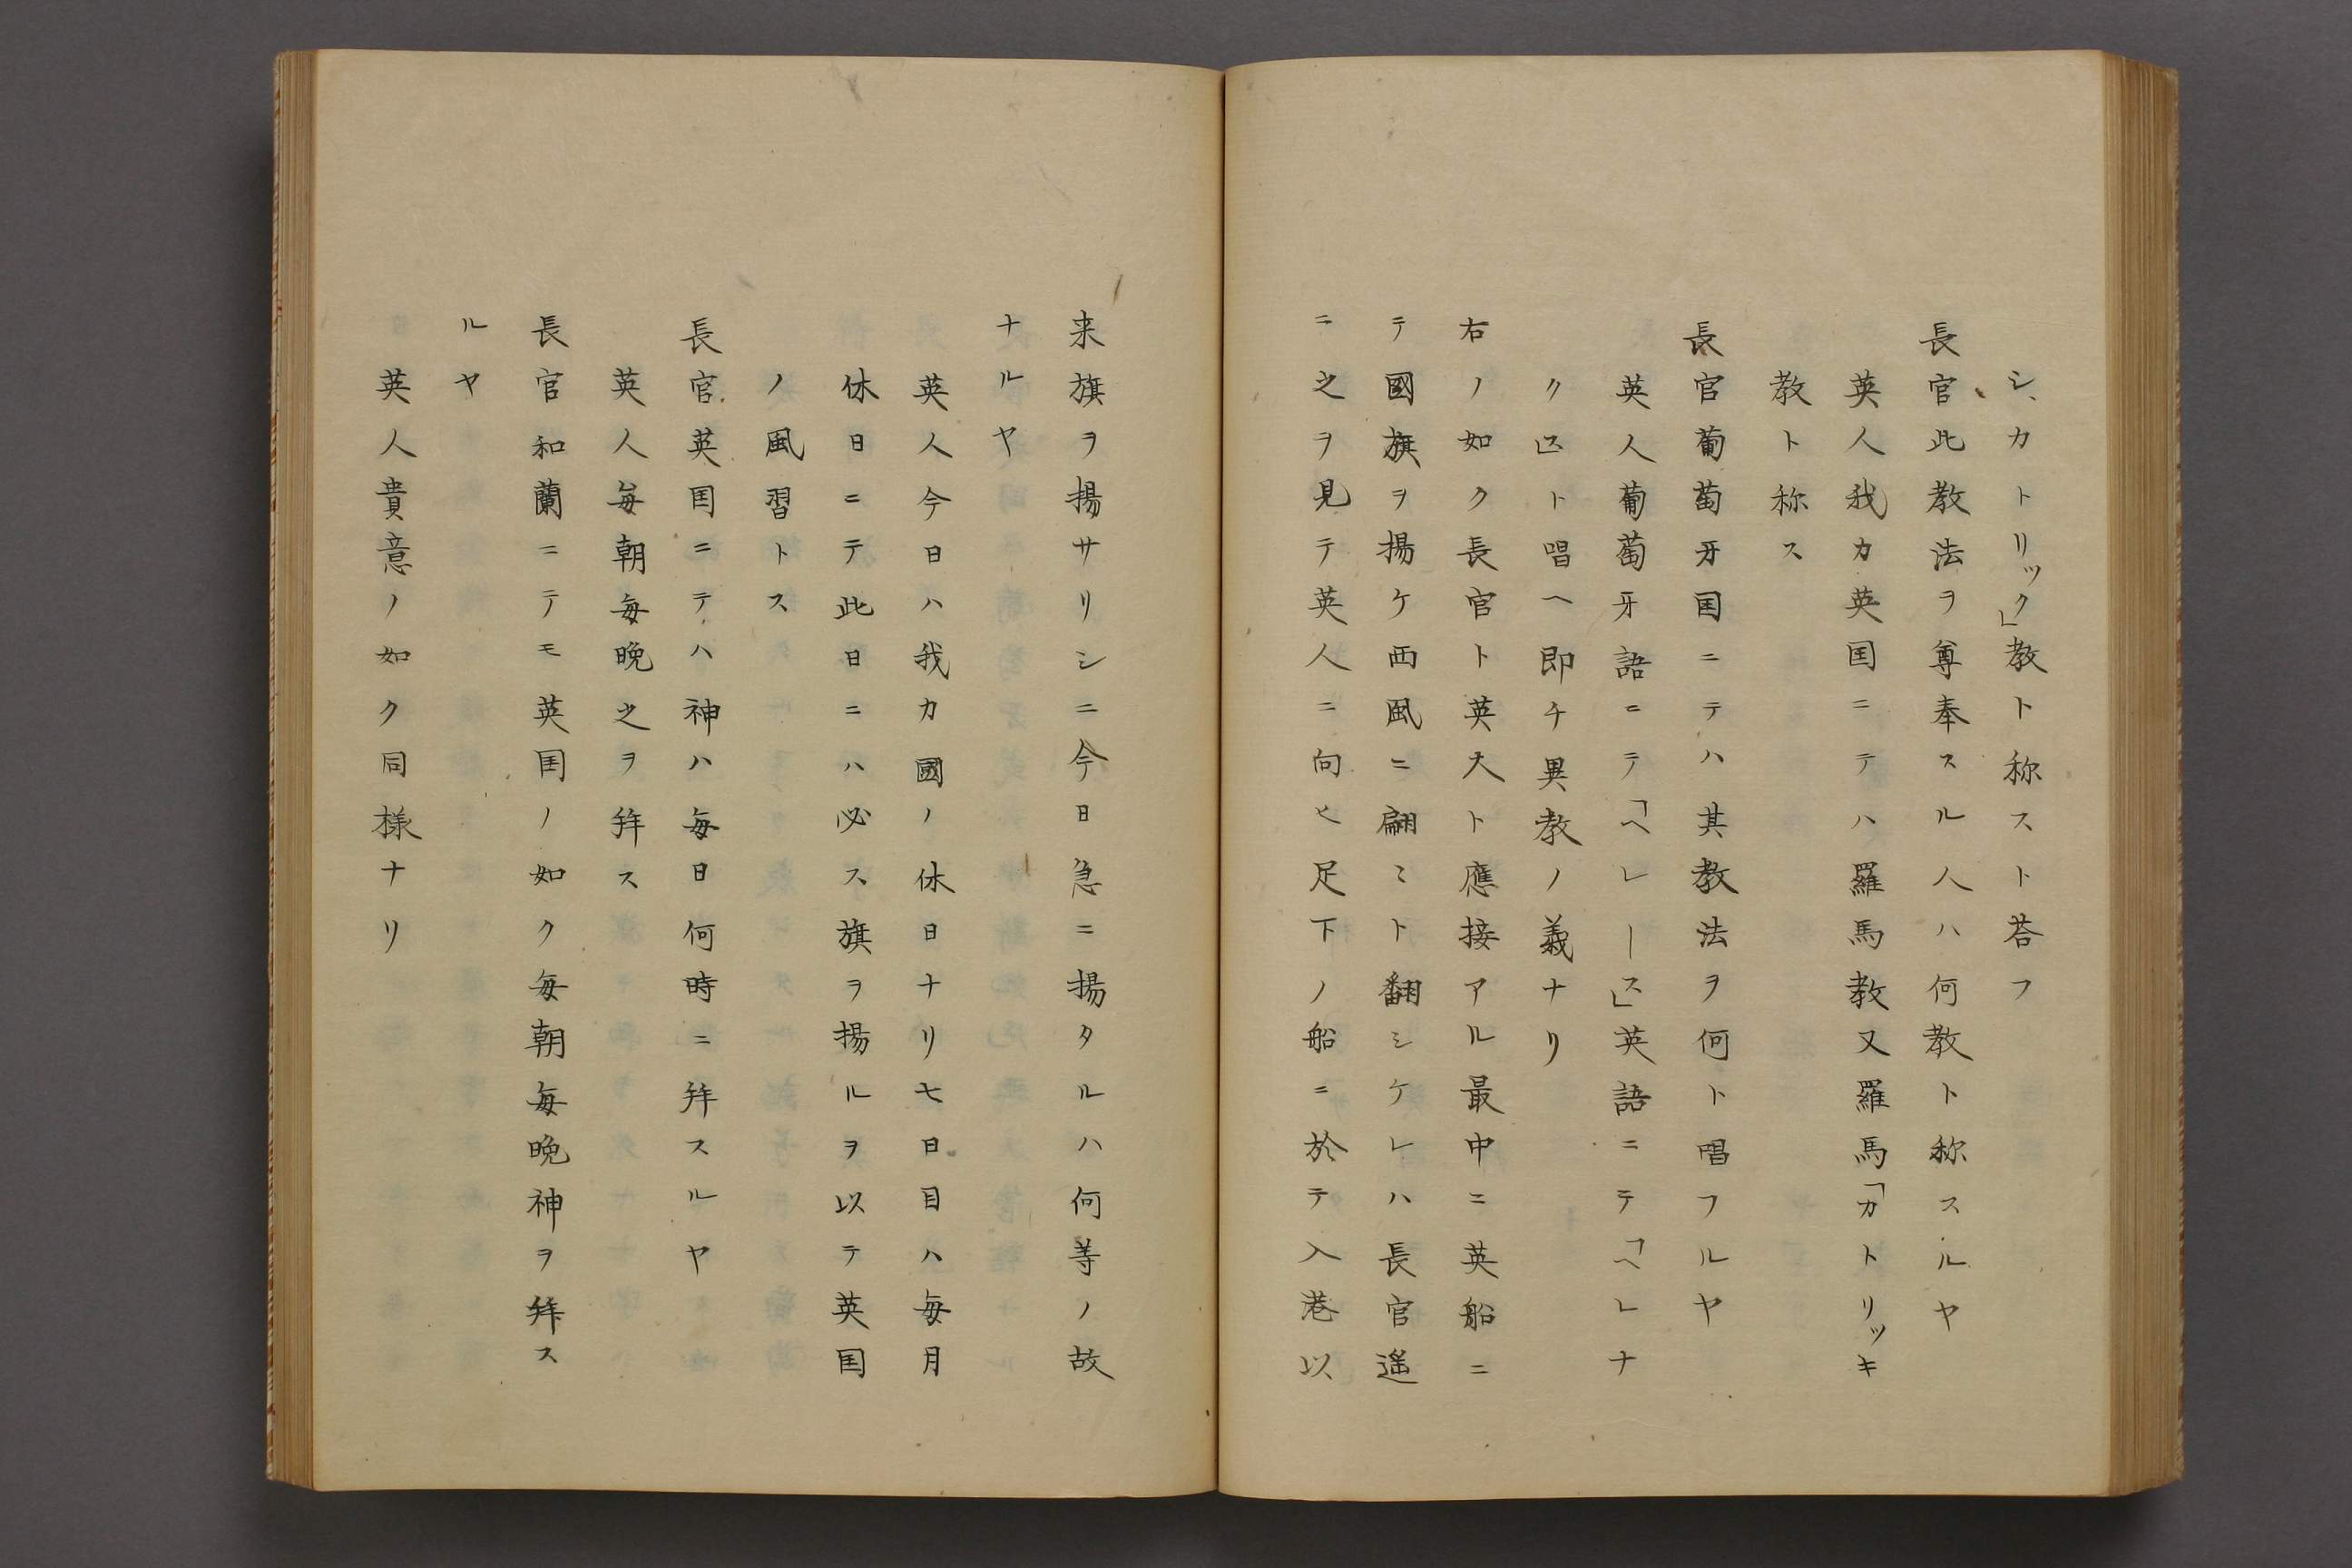 シ、カトリック」教ト称スト荅フ
長官此教法ヲ尊奉スル人ハ何教ト称スルヤ
英人我カ英国ニテハ羅馬教又羅馬「カトリッキ
教ト称ス
長官葡萄牙国ニテハ其教法ヲ何ト唱フルヤ
英人葡萄牙語ニテ「ヘレース」英語ニテ「ヘレナ
ク𪜈ト唱ヘ即チ異教ノ義ナリ
右ノ如ク長官ト英夫ト應接アル最中ニ英船ニ
テ國旗ヲ揚ケ西風ニ翩〻ト翻シケレハ長官遥
ニ之ヲ見テ英人ニ向ヒ足下ノ船ニ於テ入港以
来旗ヲ揚サリシニ今日急ニ揚タルハ何等ノ故
ナルヤ
英人今日ハ我カ國ノ休日ナリ七日目ハ毎月
休日ニテ此日ニハ必ス旗ヲ揚ルヲ以テ英国
ノ風習トス
長官英国ニテハ神ハ毎日何時ニ拜スルヤ
英人毎朝毎晩之ヲ拜ス
長官和蘭ニテモ英国ノ如ク毎朝毎晩神ヲ拜ス
ルヤ
英人貴意ノ如ク同様ナリ